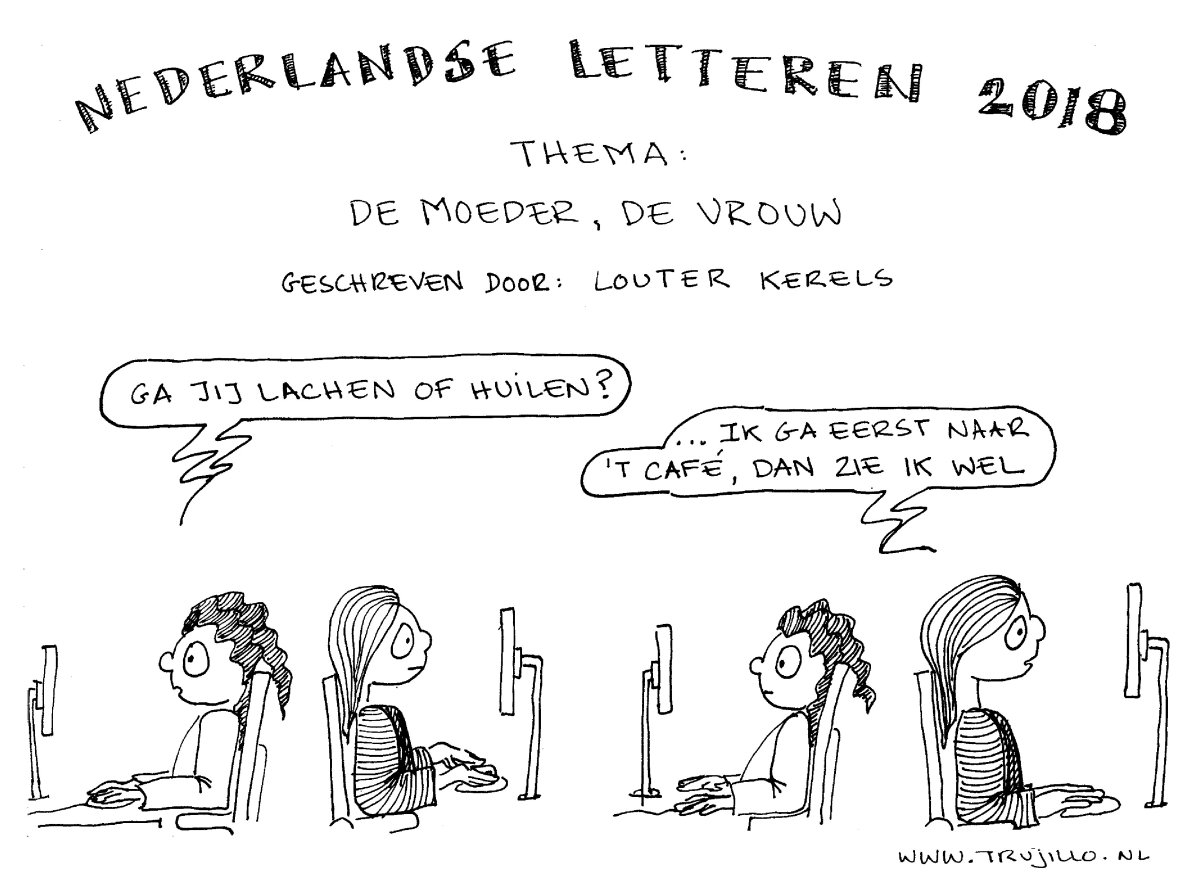 NEDERLANDSE LETTEREN 2018
THEMA:
DE MOEDER, DE VROUW
GESCHREVEN DOOR: LOUTER KERELS
GA JIJ LACHEN OF HUILEN?
... IK GA EERST NAAR
'T CAFÉ, DAN ZIE IK WEL
WWW.TRUJILLO.NL